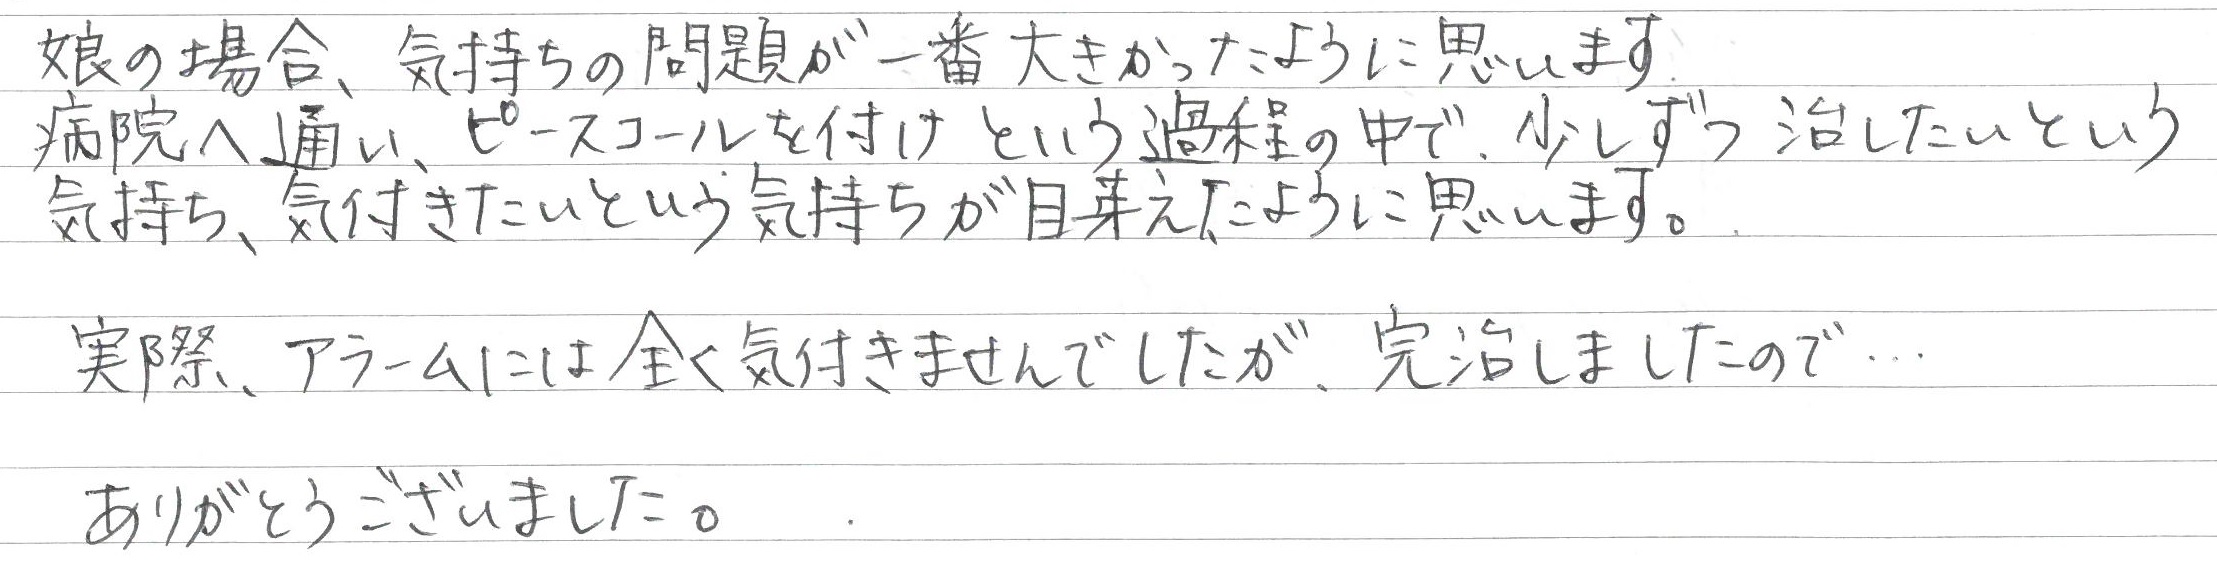 娘の場合、気持ちの問題が一番大きかったように思います。
病院へ通い、ピースコールを付けという過程の中で、少しずつ治したいという
気持ち、気付きたいという気持ちが目芽えたように思います。
実際、アラームには全く気付きませんでしたが、完治しましたので…
ありがとうございました。